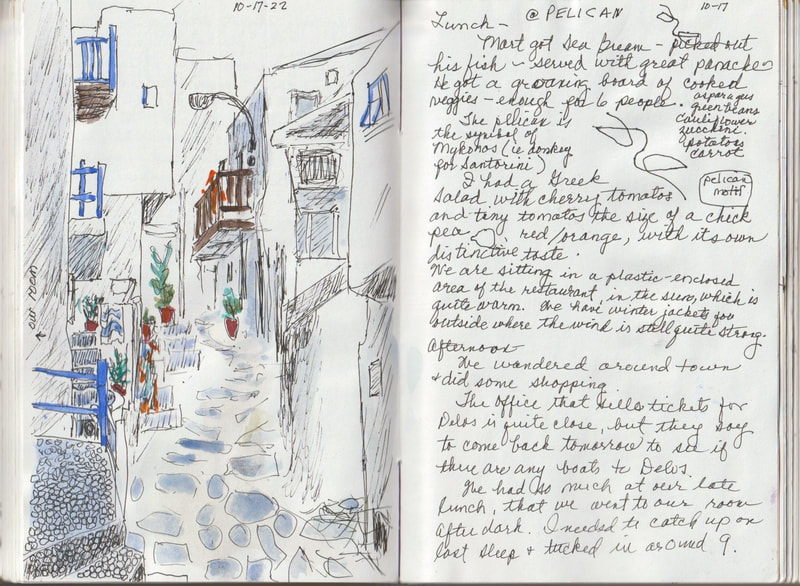 10-17-22
↑ our room
@ PELICAN
10-17
Lunch -
Mart got Sea Bream - picked out
his fish - served with great panache
He got a groaning board of cooked
veggies - enough for 6 people.
asparagus
green beans
cauliflower
zucchini
potatoes
carrot
The pelican is
the symbol of
Mykonos (ie donkey
for Santorini)
pelican
motif
I had a Greek
salad with cherry tomatos
and tiny tomatos the size of a chick
pea red/orange, with its own
distinctive taste.
We are sitting in a plastic-enclosed
area of the restaurant, in the sun, which is
quite warm. We have winter jackets
outside where the wind is still quite strong.
Afternoon
We wandered around town
+ did some shopping
The office that sells tickets for
Delos is quite close, but they say
to come back tomorrow to see if
there are any boats to Delos.
We had so much at our late
lunch, that we went to our room
after dark. I needed to catch up on
lost sleep + tucked in around 9.